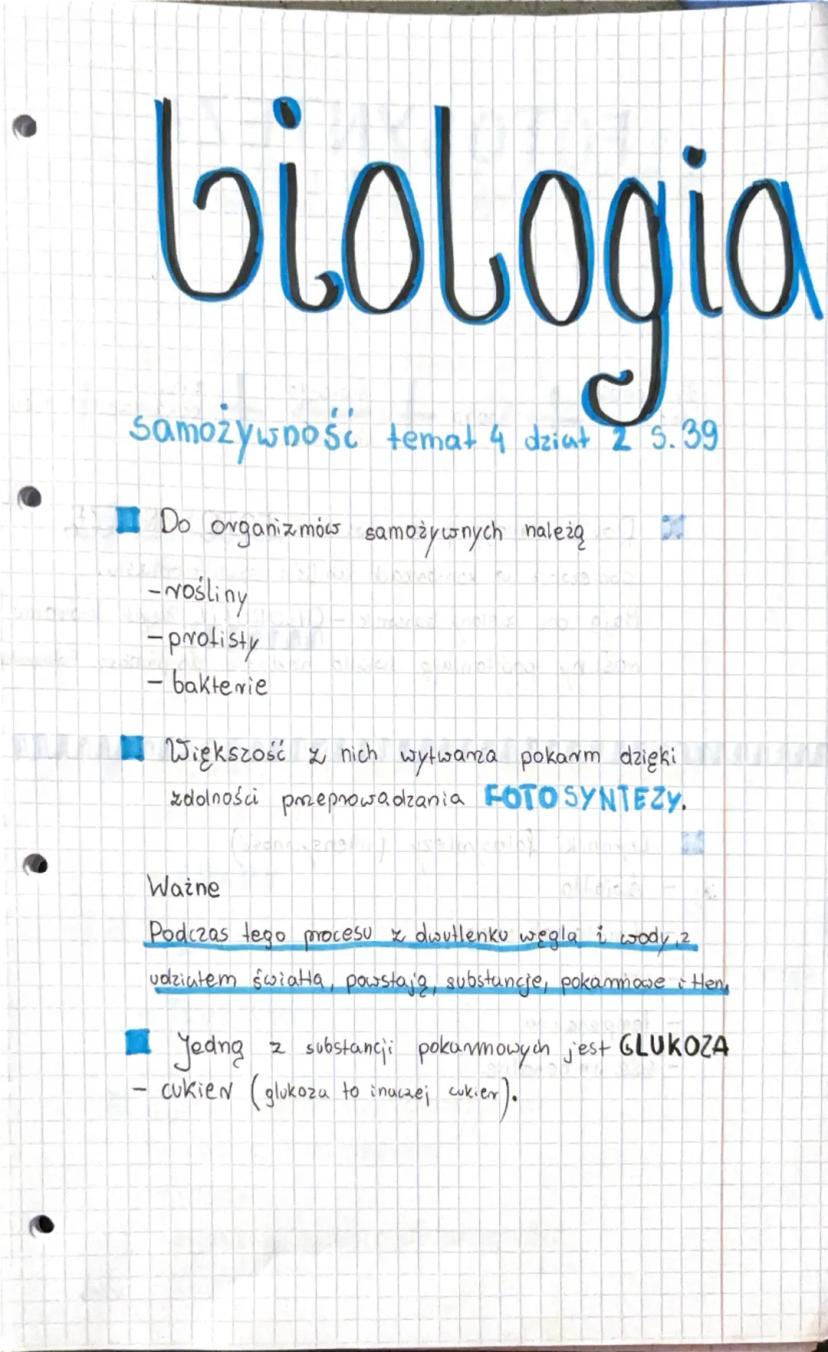 biologia
samożywność temat 4 dział 2 s.39
Do organizmów samożywnych należą
- rośliny
- protisty
- bakterie
Większość z nich wytwarza pokarm dzięki
zdolności przeprowadzania FOTOSYNTEZY.
Ważne
Podczas tego procesu z dwutlenku węgla i wody, z
udziałem światła, powstają, substancje, pokarmowe i tlen.
Jedną z substancji pokarmowych jest GLUKOZA
- cukier (glukoza to inaczej cukier).